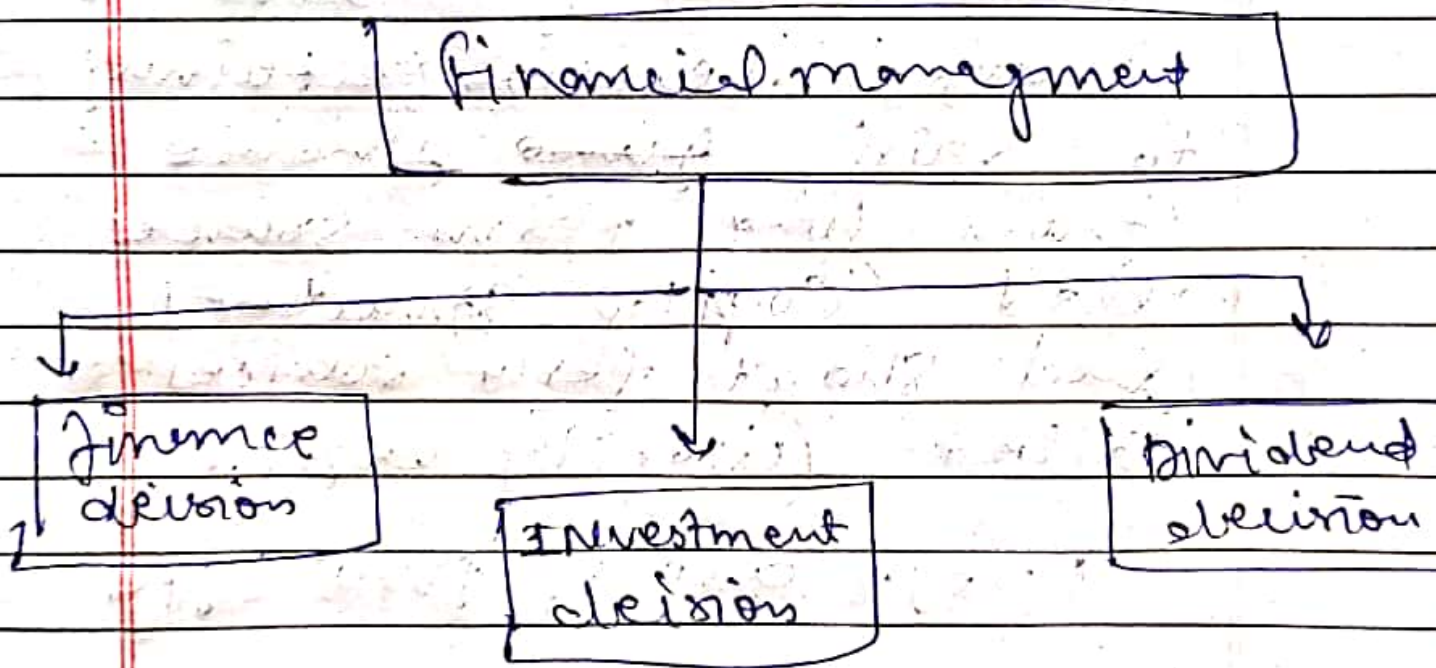 Financial managment
Finance
decision
Investment
decision
Dividend
decision